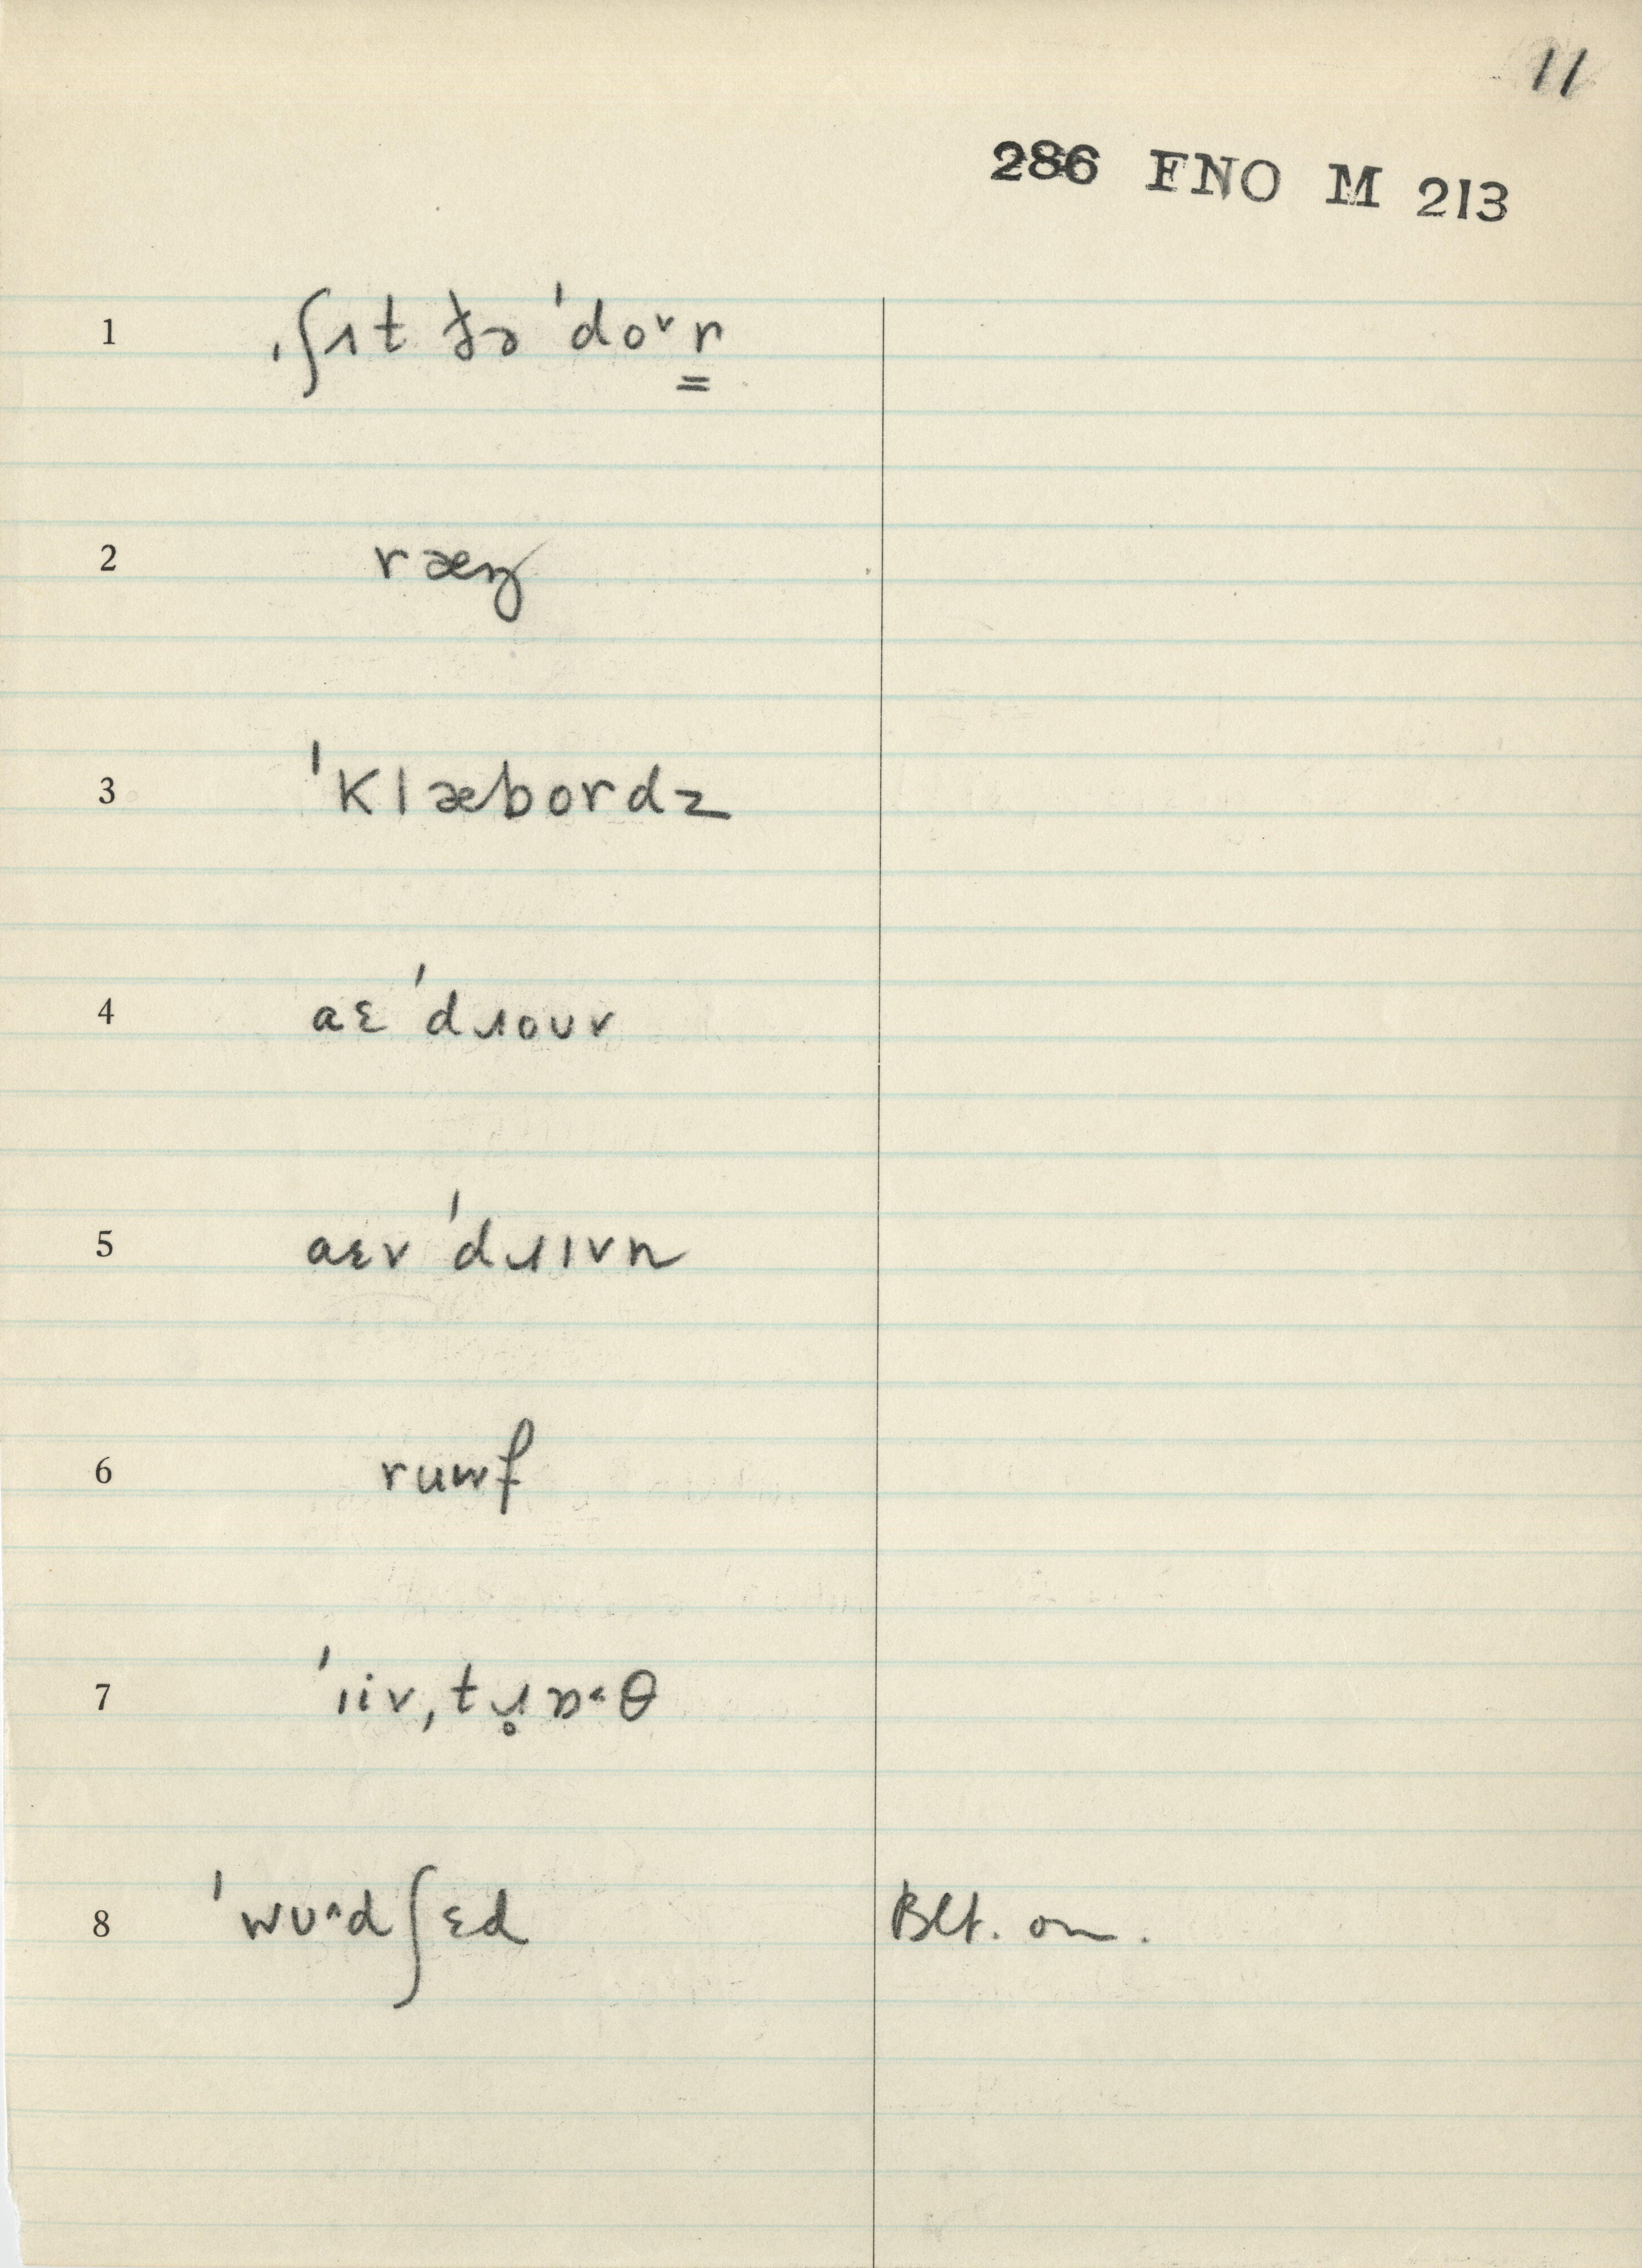 11
286 FNO M 213
1 ˌʃɪt ðə ˈdoᵛr̳
2 ræŋ
3 ˈklæbordz
4 aɛ ˈdɹouv
5 aɛv ˈdɹɪvn
6 ruwf
7 ˈiiv,tɹ̥ɒ˂θ
8 ˈwʊ^dʃɛd Blt. on.